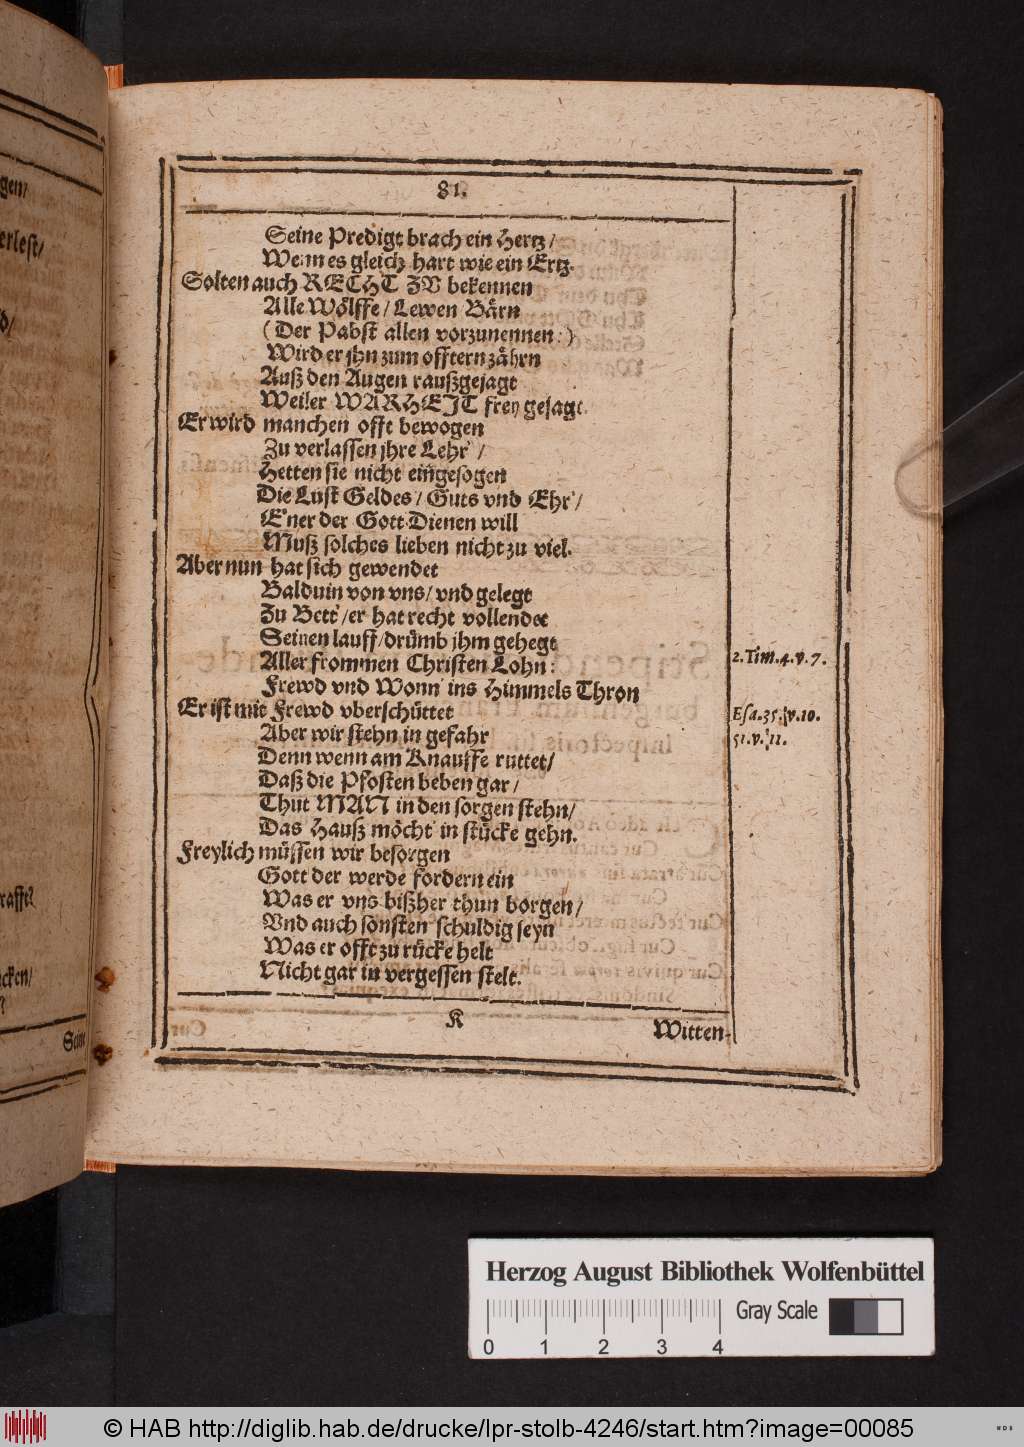 gen/
erlest/
d/
rafft?
cken/
?
Seine
81.
Seine Predigt brach ein Hertz/
Wenn es gleich hart wie ein Ertz.
Solten auch RECHT ZV bekennen
Alle Wölffe/ Lewen Bärn
(Der Pabst allen vorzunennen:)
Wird er jhn zum offtern zährn
Auß den Augen raußgejagt
Weil er WARHEJT frey gesagt.
Er wird manchen offt bewogen
Zu verlassen jhre Lehr'/
Hetten sie nicht eingesogen
Die Lust Geldes/ Guts vnd Ehr'/
E'ner der Gott Dienen will
Muß solches lieben nicht zu viel.
Aber nun hat sich gewendet
Balduin von vns/ vnd gelegt
Zu Bett'/ er hat recht vollendet
Seinen lauff/ drümb jhm gehegt
Aller frommen Christen Lohn:
Frewd vnd Wonn' ins Himmels Thron
Er ist mit Frewd vberschüttet
Aber wir stehn in gefahr
Denn wenn am Knauffe ruttet/
Daß die Pfosten beben gar/
Thut MAN in den sorgen stehn/
Das Hauß möcht' in stücke gehn.
Freylich müssen wir besorgen
Gott der werde fordern ein
Was er vns bißher thun borgen/
Vnd auch sonsten schuldig seyn
Was er offt zu rücke helt
Nicht gar in vergessen stelt.
2. Tim. 4. v. 7.
Esa. 35. v. 10.
51. v. 11.
K
Witten-
Herzog August Bibliothek Wolfenbüttel
0 1 2 3 4
Gray Scale
© HAB http://diglib.hab.de/drucke/lpr-stolb-4246/start.htm?image=00085